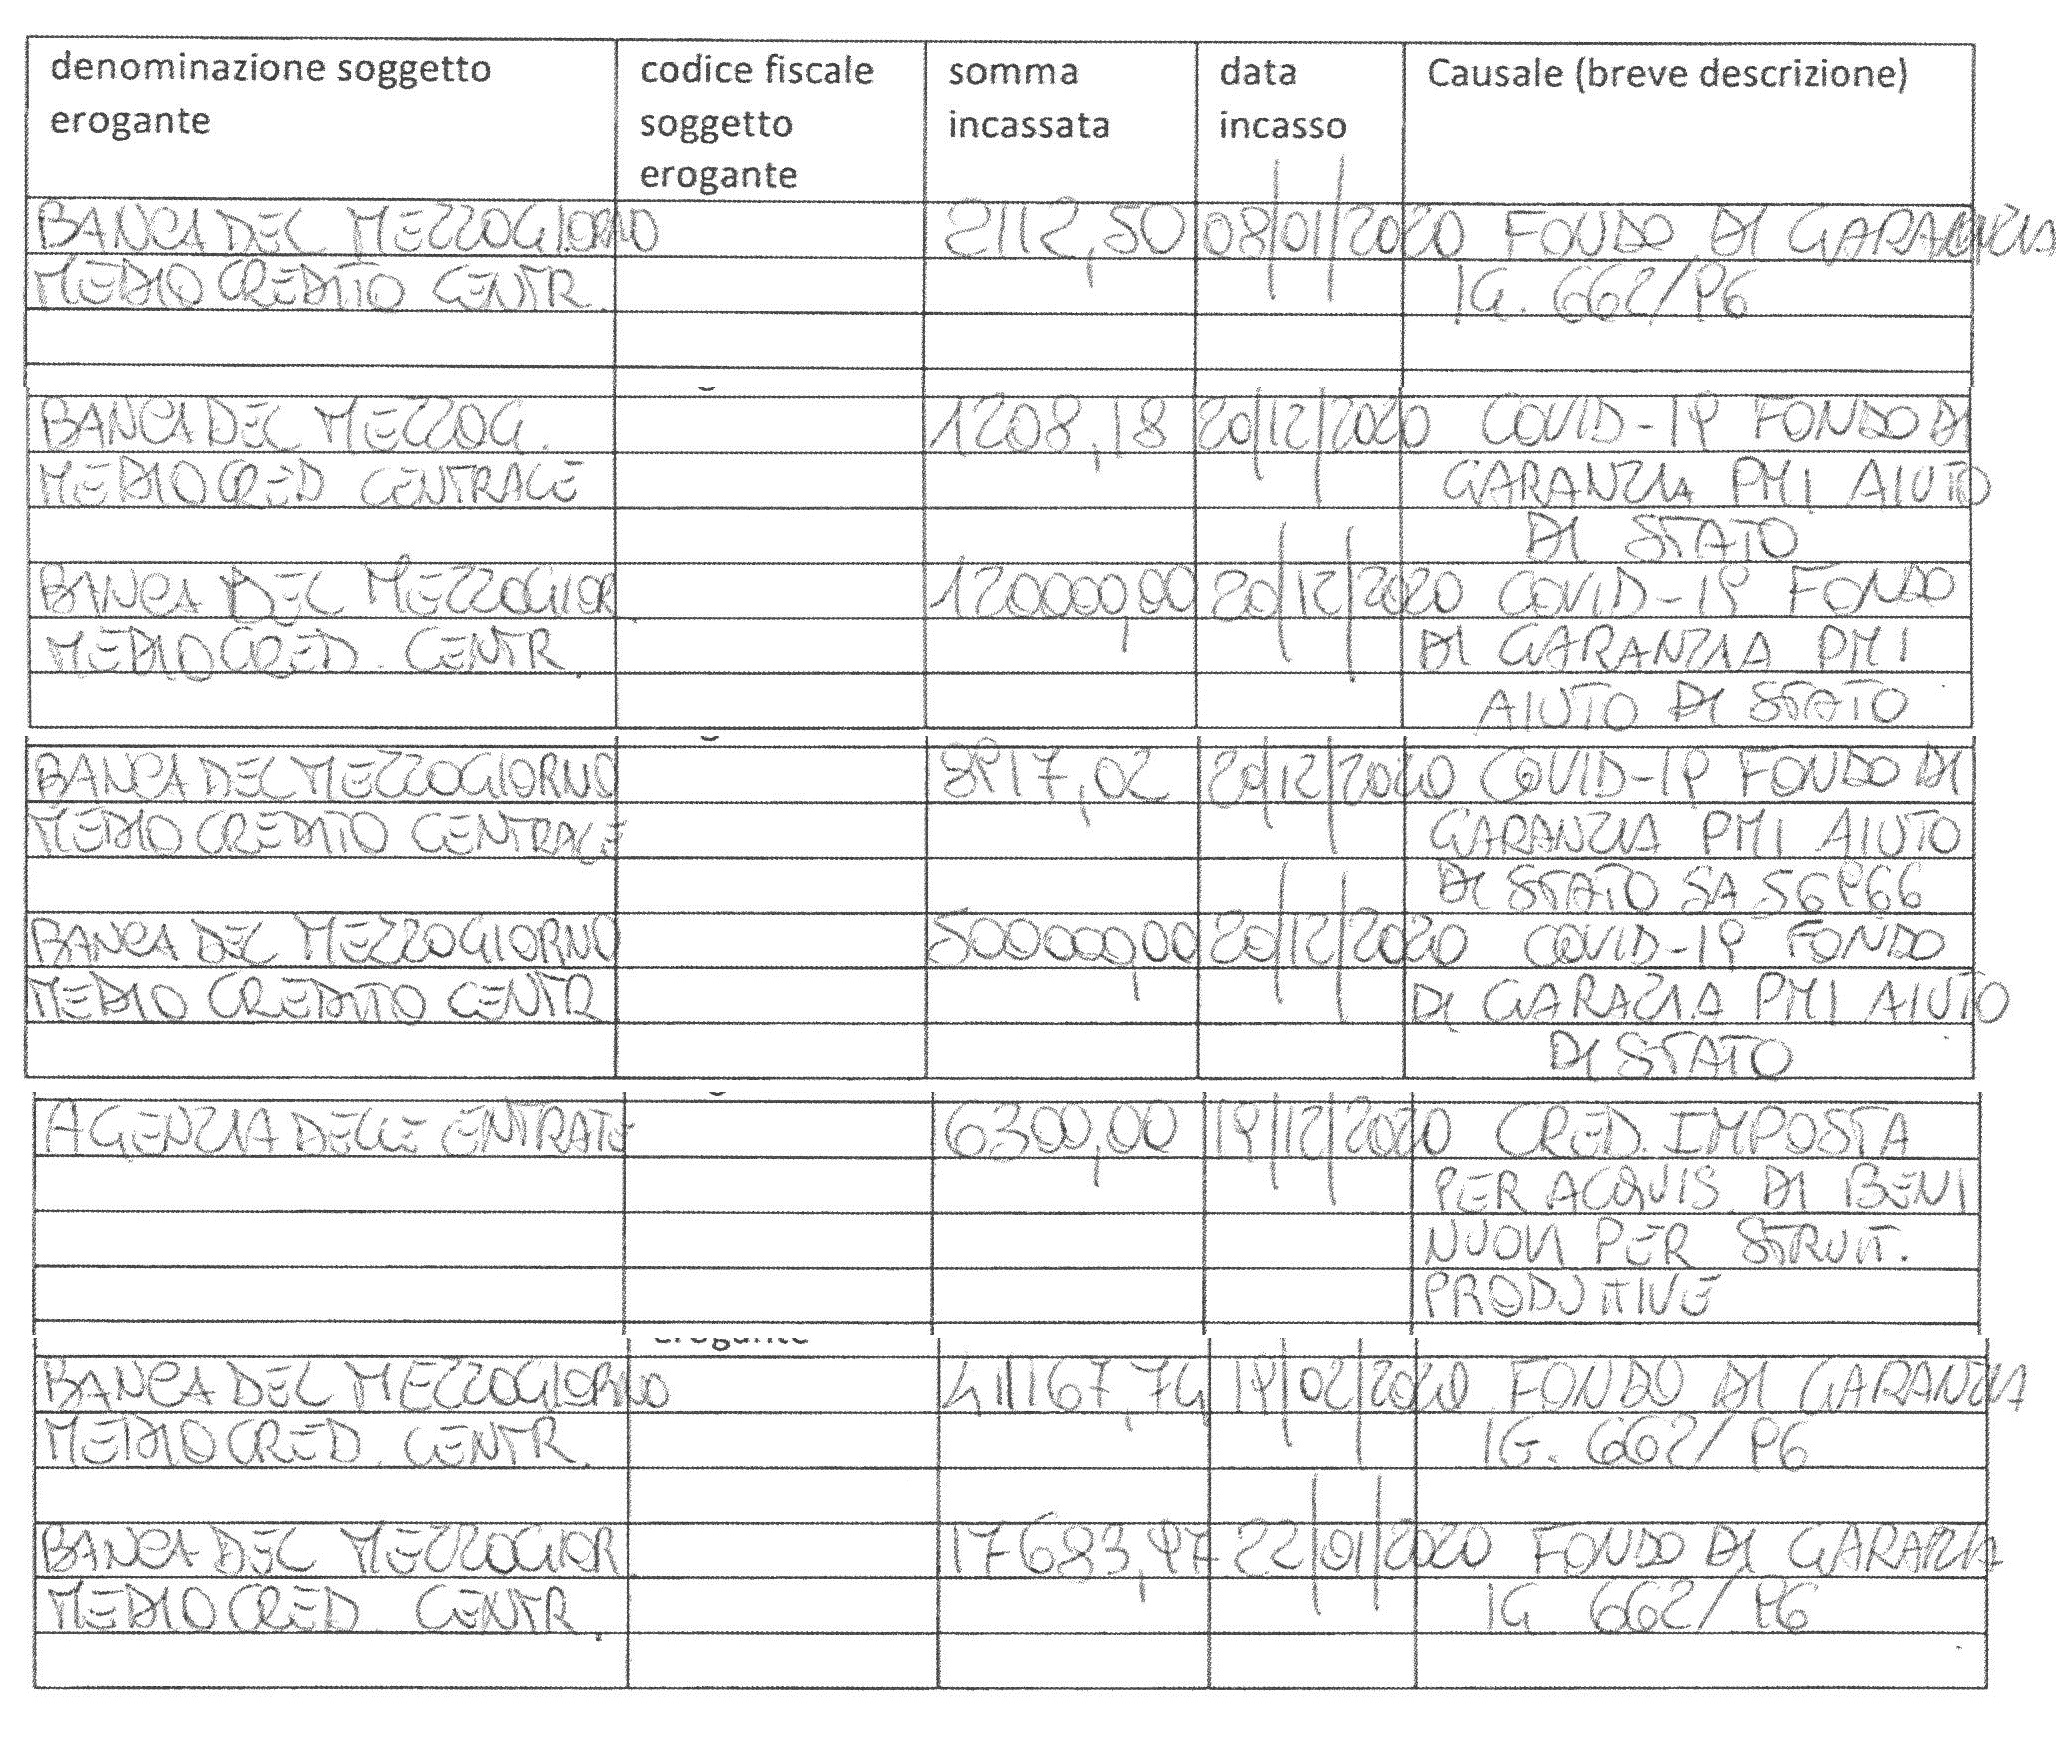 denominazione soggetto erogante codice fiscale soggetto erogante somma incassata data incasso Causale (breve descrizione)
BANCA DEL MEZZOGIORNO 2112,50 08/01/2020 FONDO DI GARANZIA
MEDIO CREDITO CENTR. IG. 662/96
BANCA DEL MEZZOG. 1208,18 20/12/2020 COVID-19 FONDO DI
MEDIO CRED CENTRALE GARANZIA PMI AIUTO
DI STATO
BANCA DEL MEZZOGIOR 120000,00 20/12/2020 COVID-19 FONDO
MEDIOCRED. CENTR. DI GARANZIA PMI
AIUTO DI STATO
BANCA DEL MEZZOGIORNO 8917,02 20/12/2020 COVID-19 FONDO DI
MEDIO CREDITO CENTRALE GARANZIA PMI AIUTO
DI STATO SA 56966
BANCA DEL MEZZOGIORNO 500000,00 20/12/2020 COVID-19 FONDO
MEDIO CREDITO CENTR DI GARAZIA PMI AIUTO
DI STATO
AGENZIA DELLE ENTRATE 6300,00 19/12/2020 CRED. IMPOSTA
PER ACQUIS. DI BENI
NUOVI PER STRUTT.
PRODUTTIVE
erogante
BANCA DEL MEZZOGIORNO 41167,74 19/02/2020 FONDO DI GARANZIA
MEDIOCRED. CENTR. IG. 662/96
BANCA DEL MEZZOGIOR 17683,97 22/01/2020 FONDO DI GARANZIA
MEDIOCRED CENTR. IG 662/96